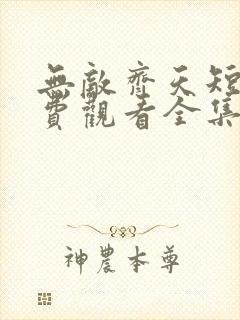 無敵齊天短
費觀看全集
神農本尊